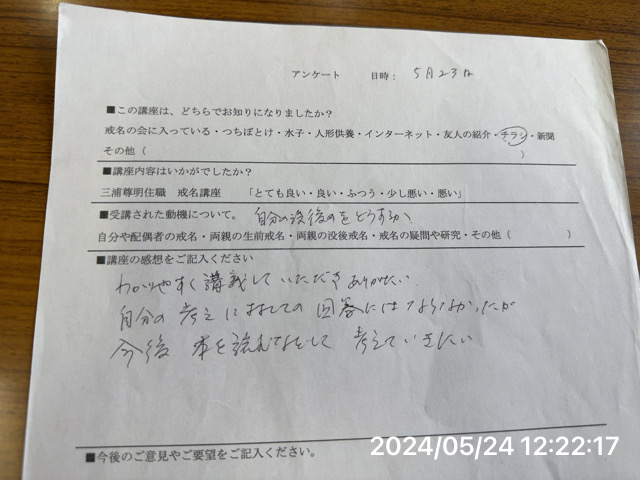 アンケート 日時： 5月23日
■この講座は、どちらでお知りになりましたか？
戒名の会に入っている・つちぼとけ・水子・人形供養・インターネット・友人の紹介・チラシ・新聞
その他（
■講座内容はいかがでしたか？
三浦尊明住職 戒名講座 「とても良い・良い・ふつう・少し悪い・悪い」
■受講された動機について。 自分の没後のをどうするか
自分や配偶者の戒名・両親の生前戒名・両親の没後戒名・戒名の疑問や研究・その他（ ）
■講座の感想をご記入ください
わかりやすく講義していただきありがたい
自分の考えに対しての回答にはならなかったが
今後 本を読むなどして 考えていきたい
■今後のご意見やご要望をご記入ください。
2024/05/24 12:22:17